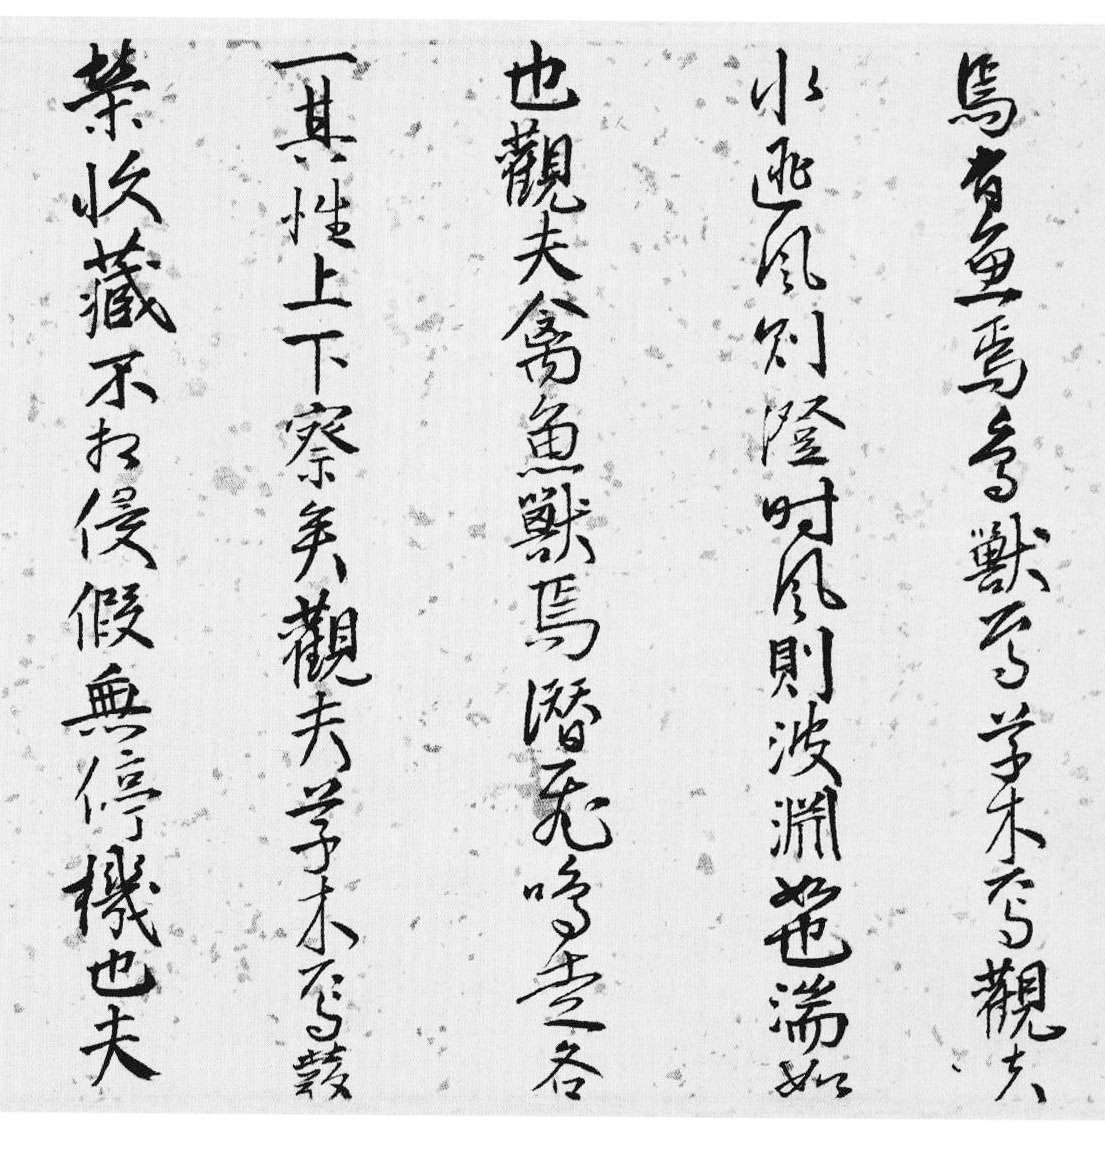 焉有魚焉鳥獸焉草木焉觀夫
水遜風則澄時風則波淵如也湍如
也觀夫禽魚獸焉潛飛鳴走各
一其性上下察矣觀夫草木焉發
榮收藏不相侵假無停機也夫